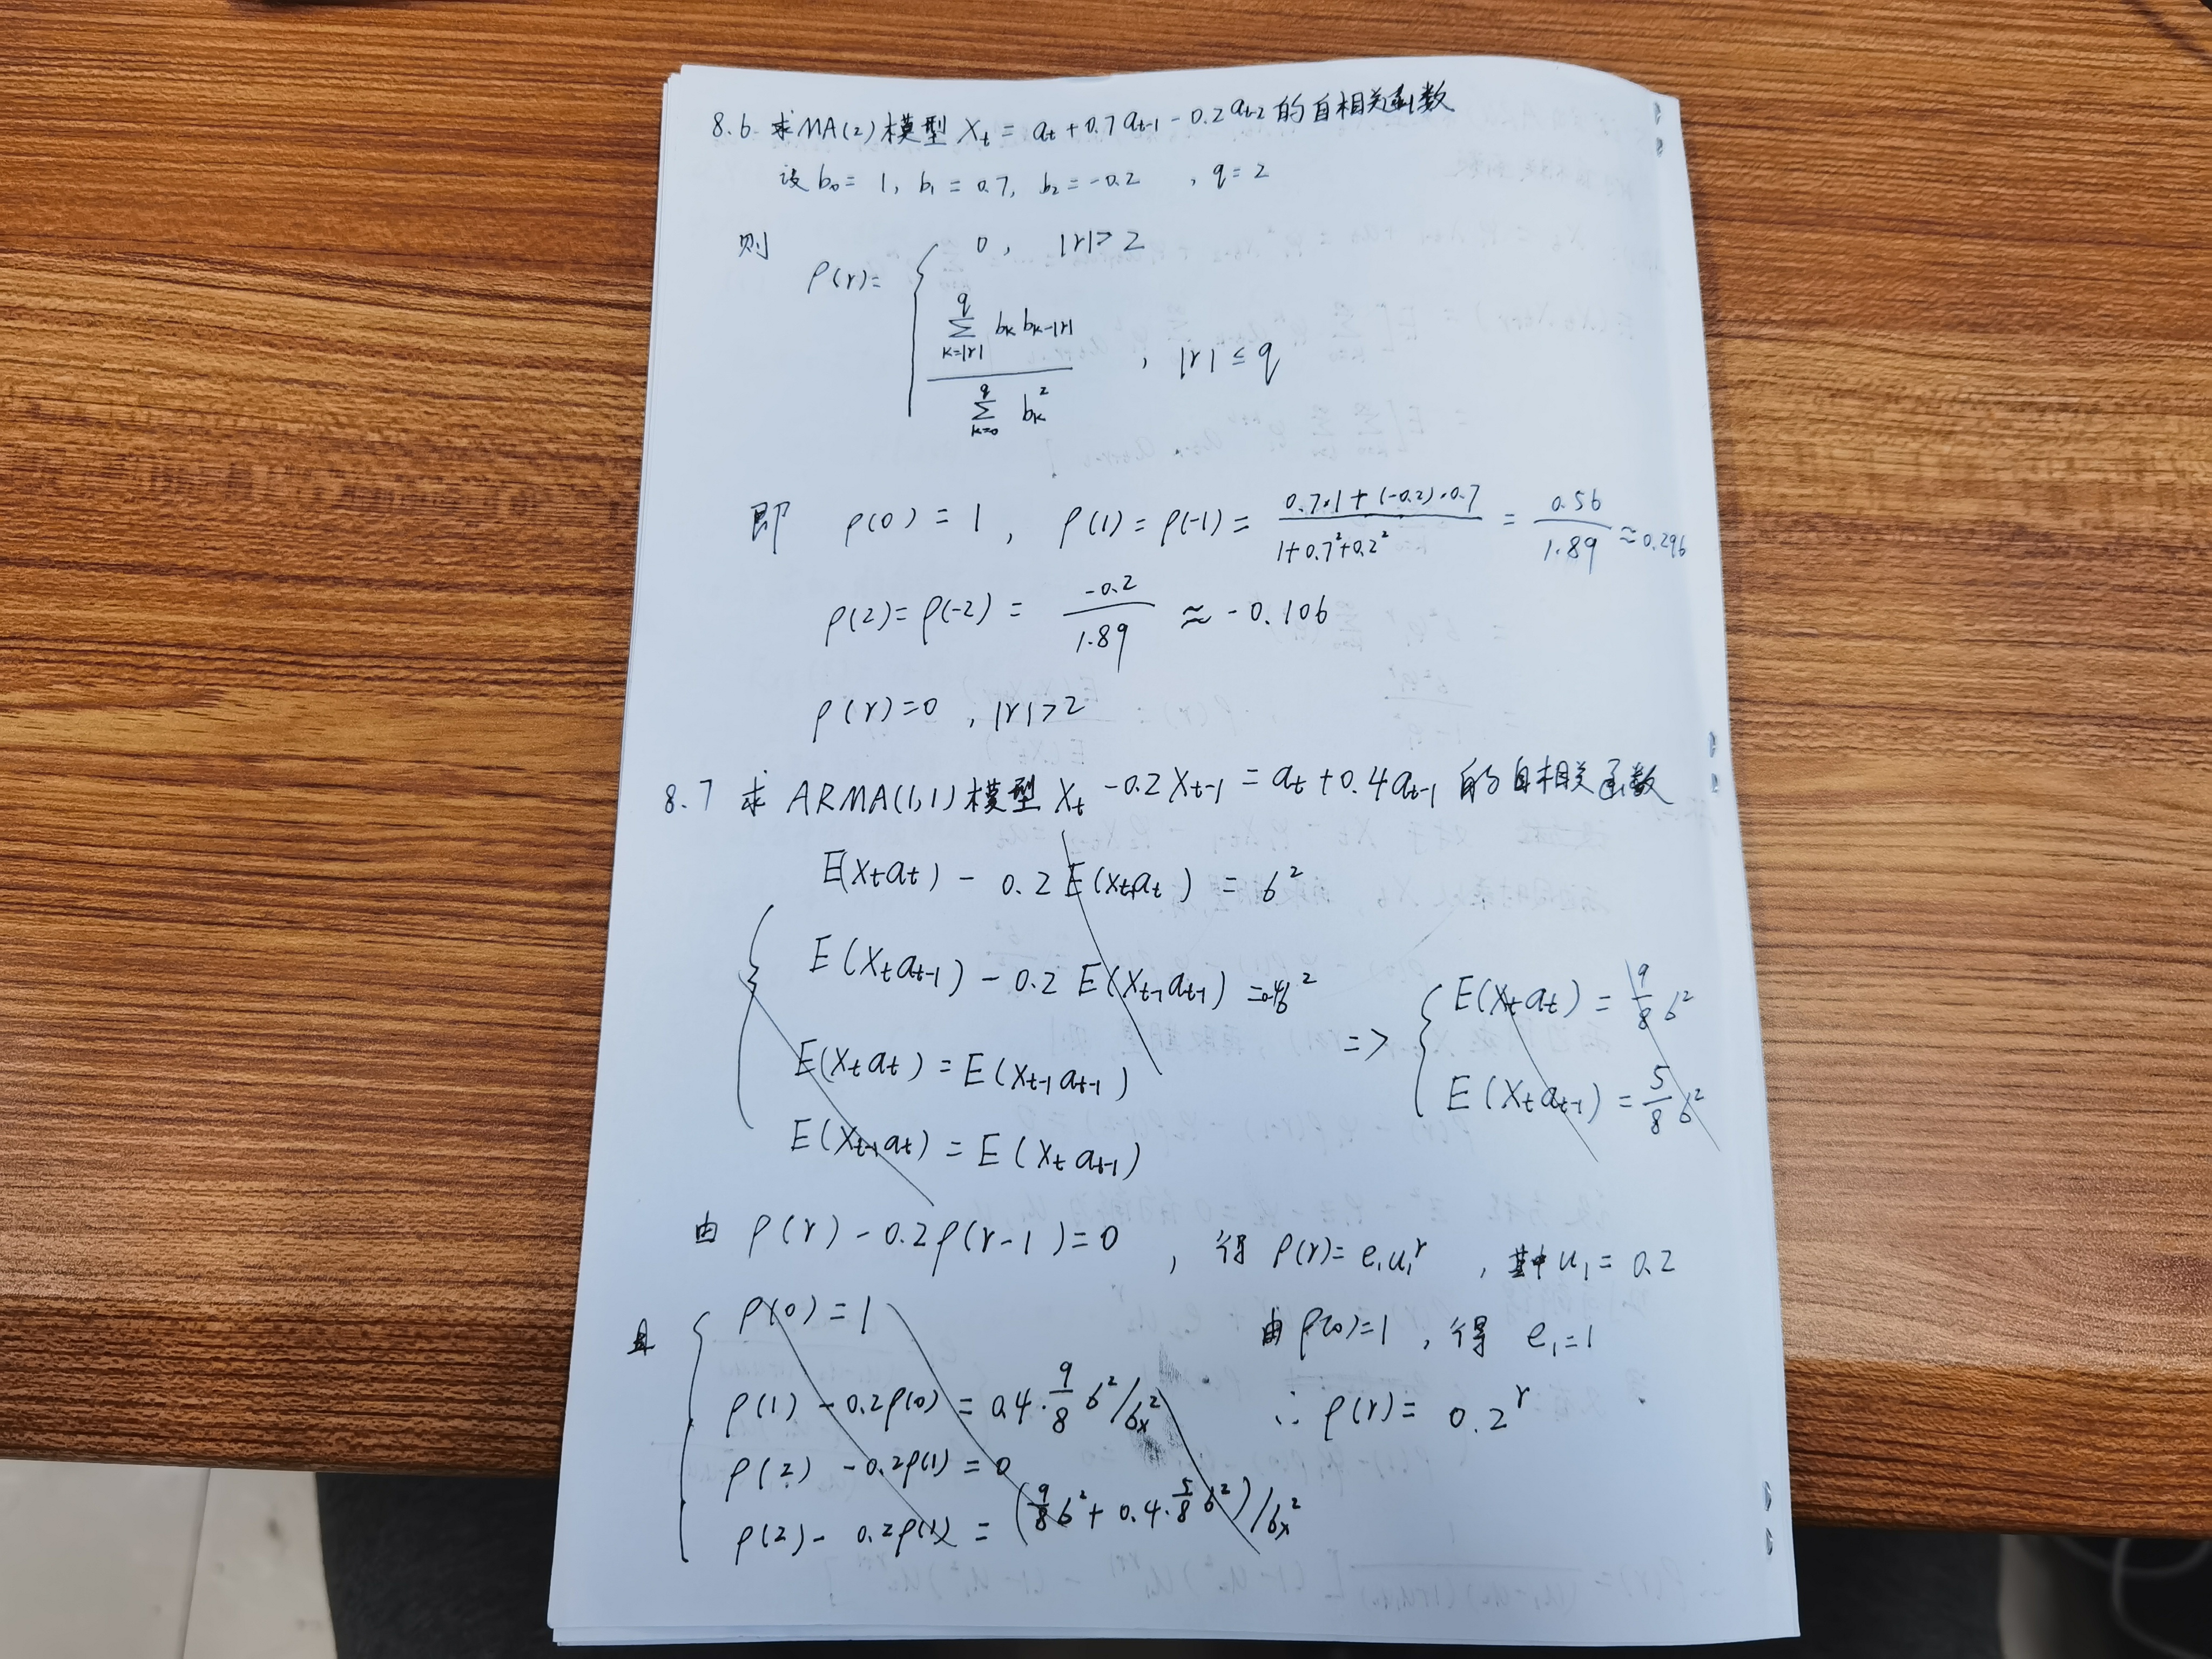 8.6. 求MA(2)模型 Xt = at + 0.7at-1 - 0.2at-2 的自相关函数
设 b0 = 1, b1 = 0.7, b2 = -0.2 , q = 2
则
ρ(r) = { 0, |r| > 2
∑_{k=|r|}^{q} bk bk-|r| / ∑_{k=0}^{q} bk² , |r| ≤ q
即 ρ(0) = 1 , ρ(1) = ρ(-1) = (0.7·1 + (-0.2)·0.7) / (1+0.7²+0.2²) = 0.56/1.89 ≈ 0.296
ρ(2) = ρ(-2) = -0.2/1.89 ≈ -0.106
ρ(r) = 0 , |r| > 2
8.7 求 ARMA(1,1)模型 Xt - 0.2Xt-1 = at + 0.4at-1 的自相关函数
E(Xtat) - 0.2E(Xt-1at) = б²
E(Xtat-1) - 0.2E(Xt-1at-1) = 0.4б²
E(Xtat) = E(Xt-1at-1)
E(Xt-1at) = E(Xtat-1)
=> { E(Xtat) = 9/8 б²
E(Xtat-1) = 5/8 б²
由 ρ(r) - 0.2ρ(r-1) = 0 , 得 ρ(r) = e1u1^r , 其中 u1 = 0.2
且 { ρ(0) = 1
ρ(1) - 0.2ρ(0) = 0.4·9/8 б²/бx²
ρ(2) - 0.2ρ(1) = 0
ρ(2) - 0.2ρ(1) = (9/8 б² + 0.4·5/8 б²)/бx²
由 ρ(0)=1 , 得 e1=1
∴ ρ(r) = 0.2^r